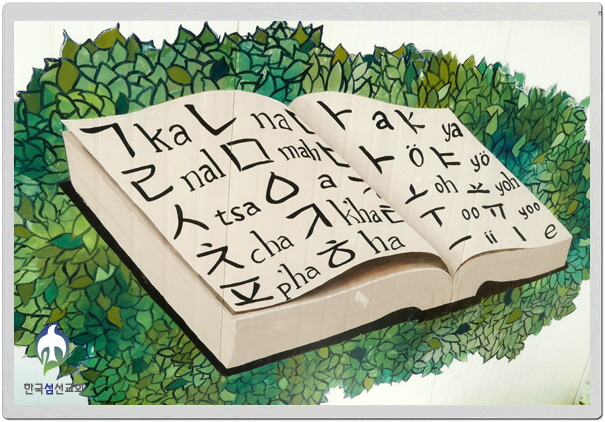 ㄱ ka ㄴ na
ㄹ nal ㅁ mah
ㅅ tsa ㅇ a
ㅊ cha ㅋ k'ha
ㅍ p'ha ㅎ ha
ㅏ a ㅑ ya
ㅓ ö ㅕ yö
ㅗ oh ㅛ yoh
ㅜ oo ㅠ yoo
ㅡ ii ㅣ e
한국섬선교회